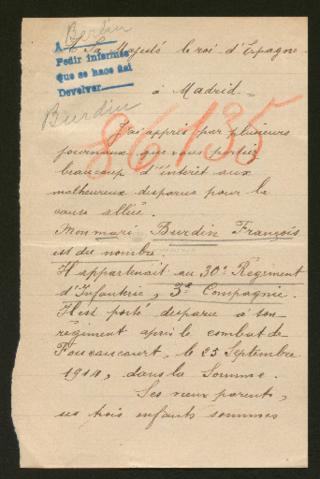 Berdin
A Sa Majesté le roi d'Espagne
Pedir informes
que se hace así
Devolver
à Madrid.
Burdin
86135
J'ai appris par plusieurs
journaux que vous portiez
beaucoup d'intérêt aux
malheureux disparus pour la
cause alliée.
Mon mari Burdin François
est du nombre.
Il appartenait au 30e Régiment
d'Infanterie, 3e Compagnie.
Il est porté disparu à son
régiment après le combat de
Foucaucourt, le 25 Septembre
1914, dans la Somme.
Ses vieux parents,
ses trois enfants sommes